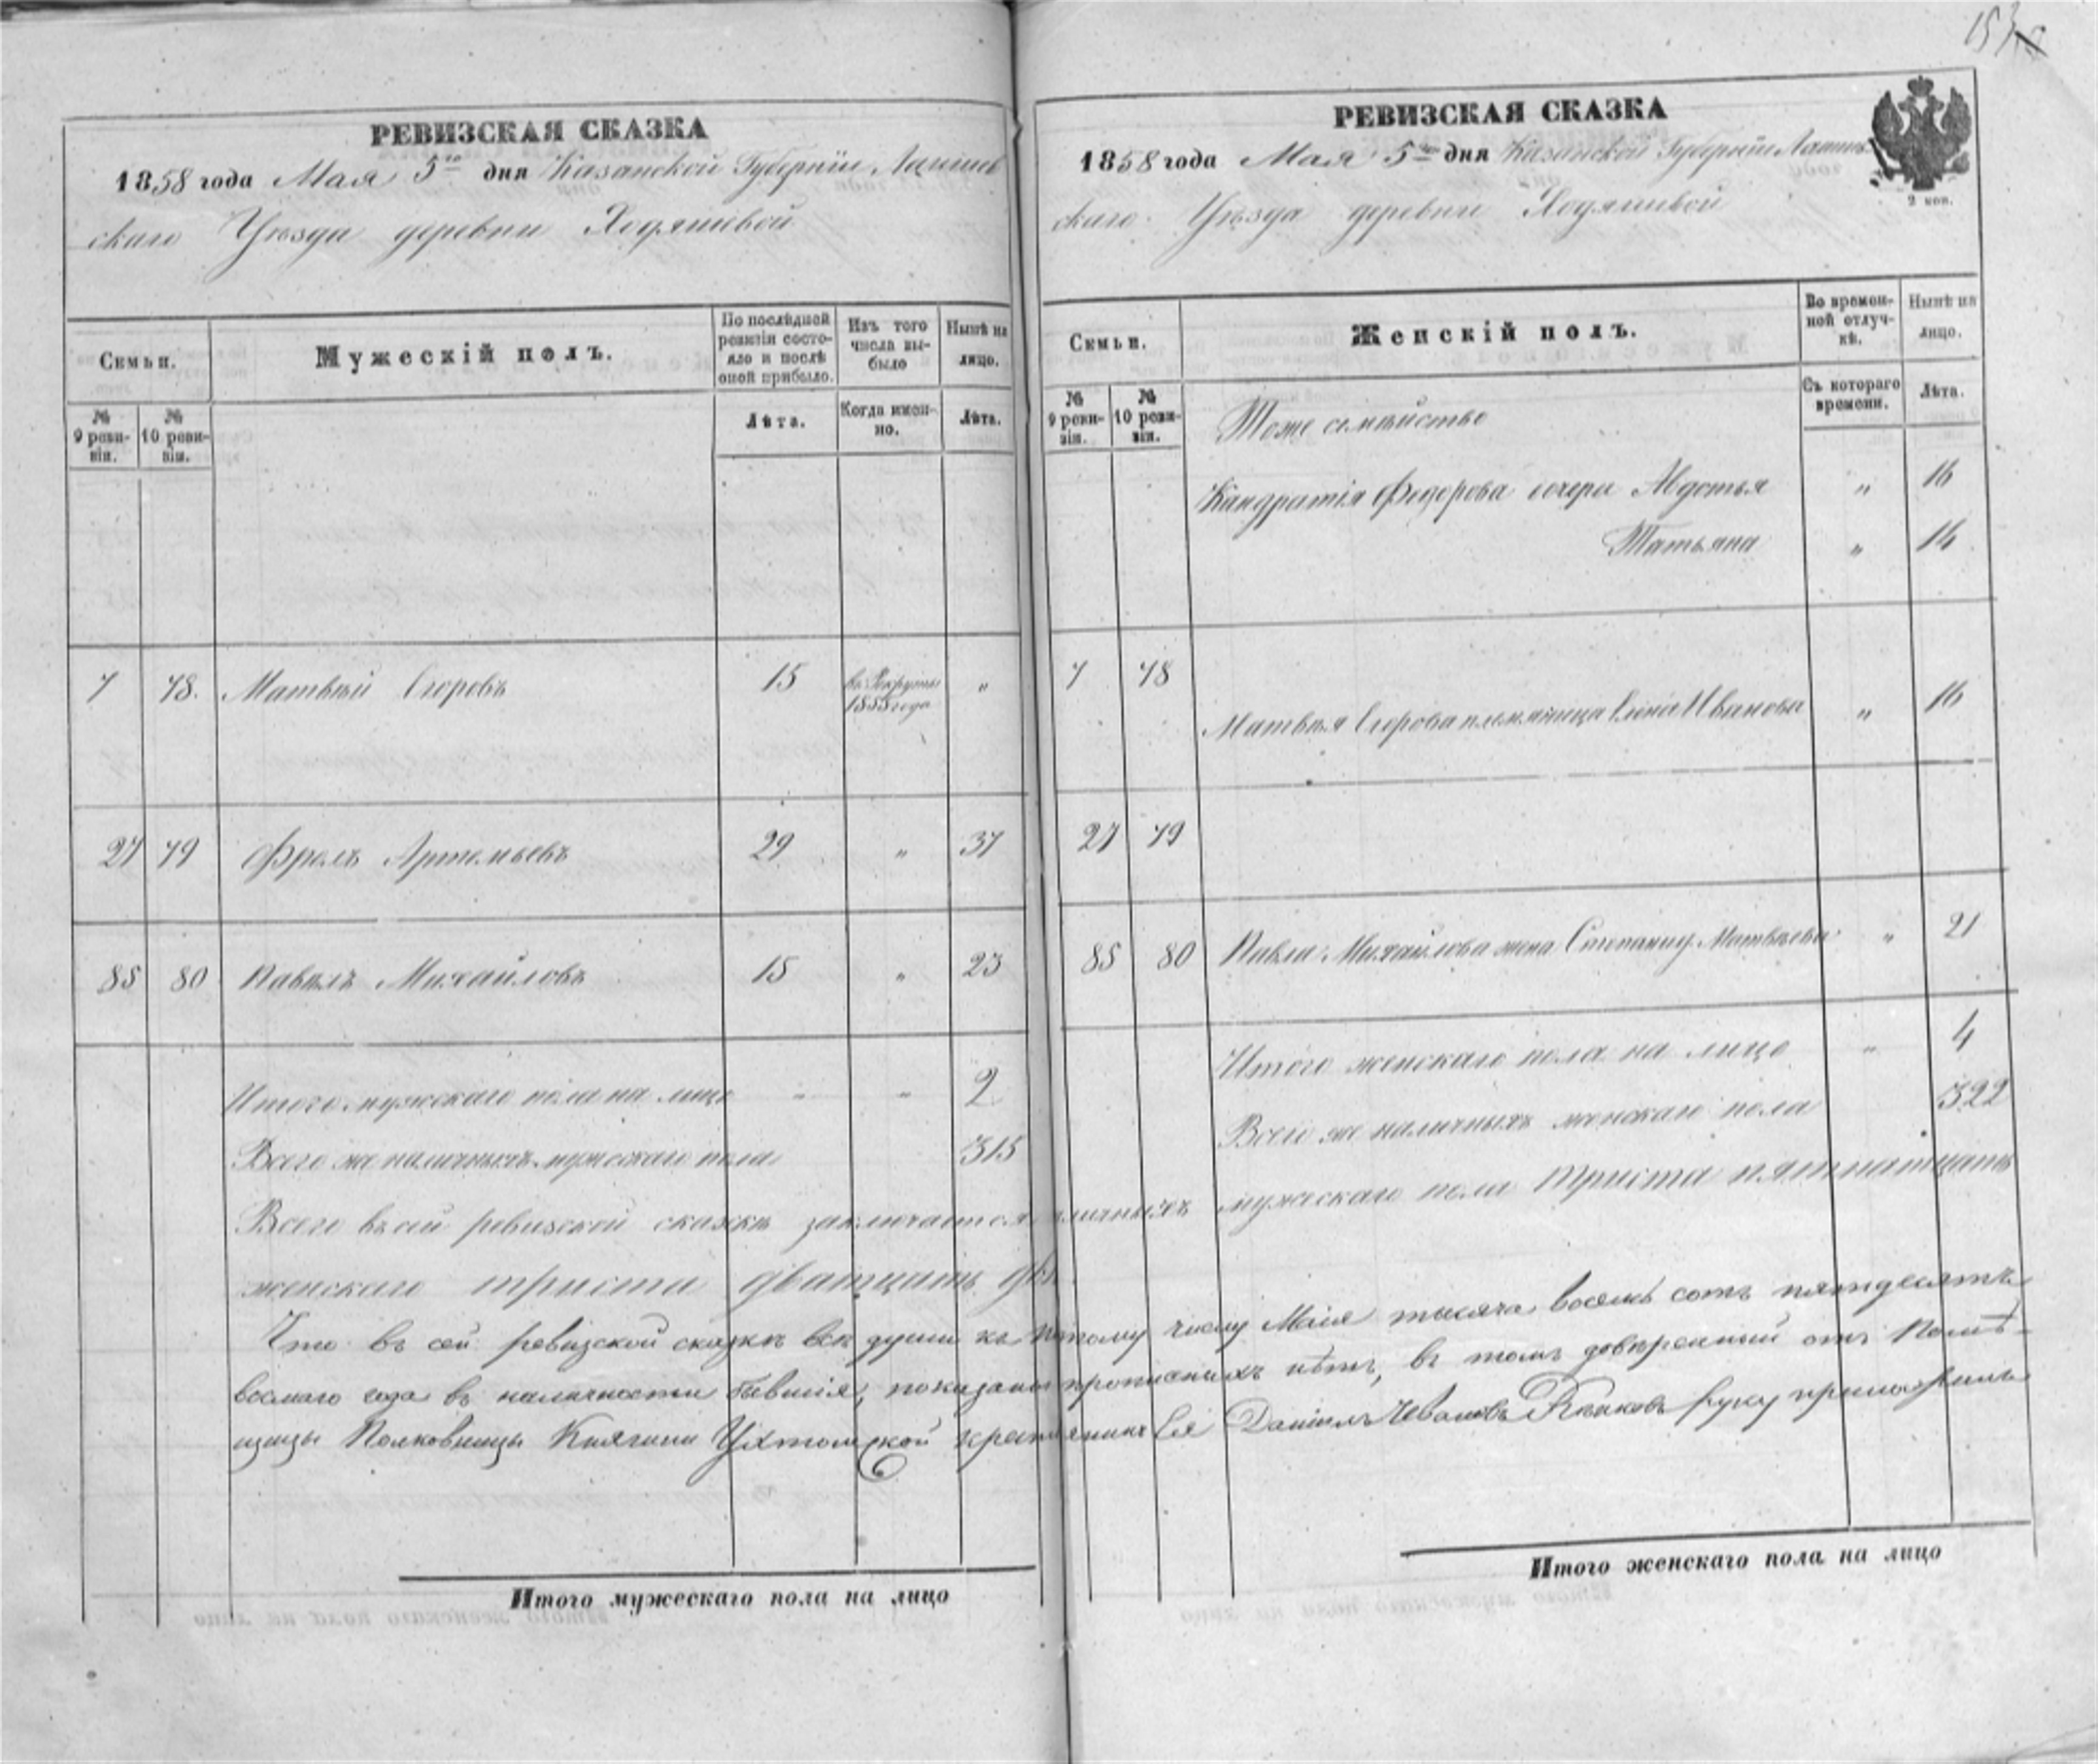 153
РЕВИЗСКАЯ СКАЗКА
1858 года Мая 5го дня Казанской Губернiи Лаишев
скаго Уѣзда деревни Ходяшевой
Семьи.
Мужескiй полъ.
По послѣдней ревизiи состояло и послѣ оной прибыло.
Изъ того числа выбыло
Нынѣ на лицо.
№ 9 ревизiи.
№ 10 ревизiи.
Лѣта.
Когда именно.
Лѣта.
7 78. Матвѣй Егоровъ 15 въ Рекруты 1855 года "
27 79 Фролъ Артемьевъ 29 " 37
85 80 Павелъ Михайловъ 15 " 23
Итого мужскаго пола на лицо " " 2
Всего же наличныхъ мужескаго пола 315
РЕВИЗСКАЯ СКАЗКА
1858 года Мая 5го дня Казанской Губернiи Лаишев
скаго Уѣзда деревни Ходяшевой
2 коп.
Семьи.
Женскiй полъ.
Во временной отлучкѣ.
Нынѣ на лицо.
№ 9 ревизiи.
№ 10 ревизiи.
Съ котораго времени.
Лѣта.
Тоже семѣйство
Кандратiя Федорова дочери Авдотья " 16
Татьяна " 14
7 78
Матвѣя Егорова племяница Елена Иванова " 16
27 79
85 80 Павла Михайлова жена Степанида Матвѣева " 21
Итого женскаго пола на лицо " 4
Всего же наличныхъ женскаго пола 322
Всего въ сей ревизской сказкѣ заключается наличныхъ мужескаго пола триста пятнатцать
женскаго триста дватцать двѣ
Что въ сей ревизской сказкѣ всѣ души къ пятому числу Маiя тысяча восемь сотъ пятдесятъ
восмаго года въ наличности бывшiя, показаны и прописныхъ нѣтъ, въ томъ довѣренный отъ Помѣ-
щицы Полковницы Княгини Ухтомской крестьянинъ Ея Данiилъ руку приложилъ
Итого мужескаго пола на лицо
Итого женскаго пола на лицо